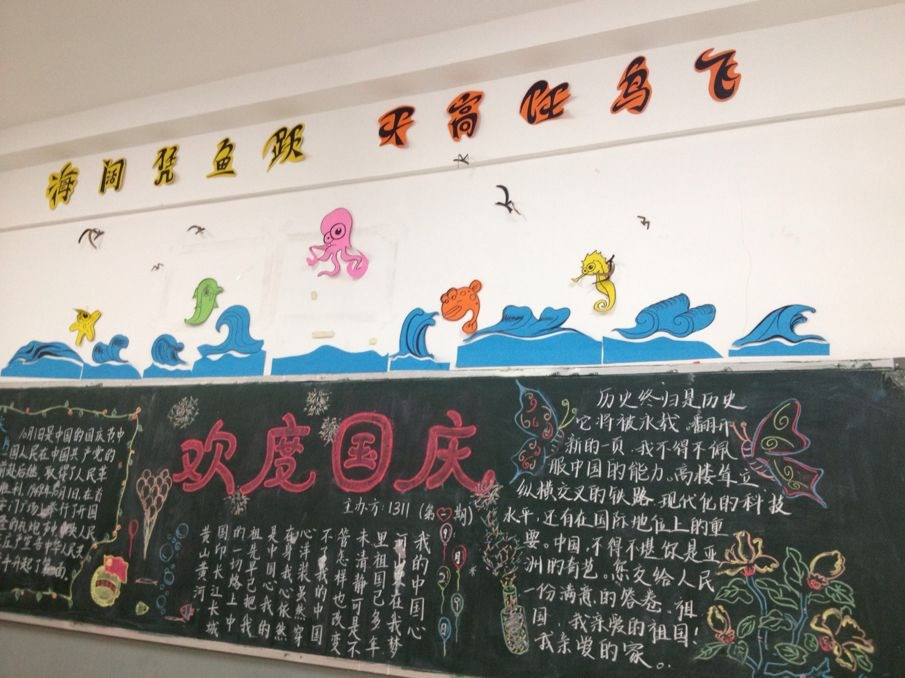 海阔凭鱼跃 天高任鸟飞
10月1日是中国的国庆节中
国人民在中国共产党的
前赴后继,取得了人民革
胜利,1949年10月1日,在首
门广场举行开国
人民
升起了
欢度国庆
主办方:1311(第一期)
我的中国心
河在我梦
里祖国已多年
未清静可是不
答怎样也改变
不了我的中国
心洋装虽然穿
在身我心依然
是中国心我的
祖是早已把我
的一切烙上中
国印长江长城
黄山黄河
历史终归是历史
它将被永载,翻开
新的一页,我不得不佩
服中国的能力。高楼耸立
纵横交叉的铁路,现代化的科技
水平,还有在国际地位上的重
要。中国,不得不堪你是亚
洲的奇芭,您交给人民
一份满意的答卷。祖
国,我亲爱的祖国!
我亲爱的家。